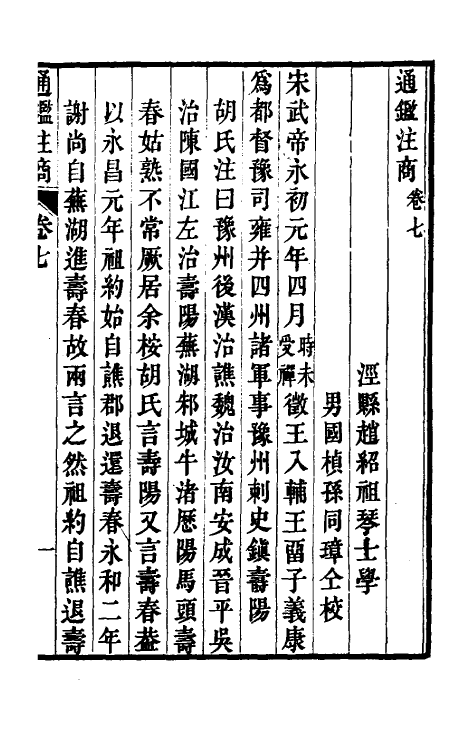 通鑑注商卷七
涇縣趙紹祖琴士學
男國楨孫同璋仝校
宋武帝永初元年四月時未受禪徵王入輔王留子義康
爲都督豫司雍并四州諸軍事豫州刺史鎭壽陽
胡氏注曰豫州後漢治譙魏治汝南安成晉平吳
治陳國江左治壽陽蕪湖邾城牛渚歷陽馬頭壽
春姑熟不常厥居余桉胡氏言壽陽又言壽春蓋
以永昌元年祖約始自譙郡退還壽春永和二年
謝尚自蕪湖進壽春故兩言之然祖約自譙退壽
通鑑注商
卷七
一